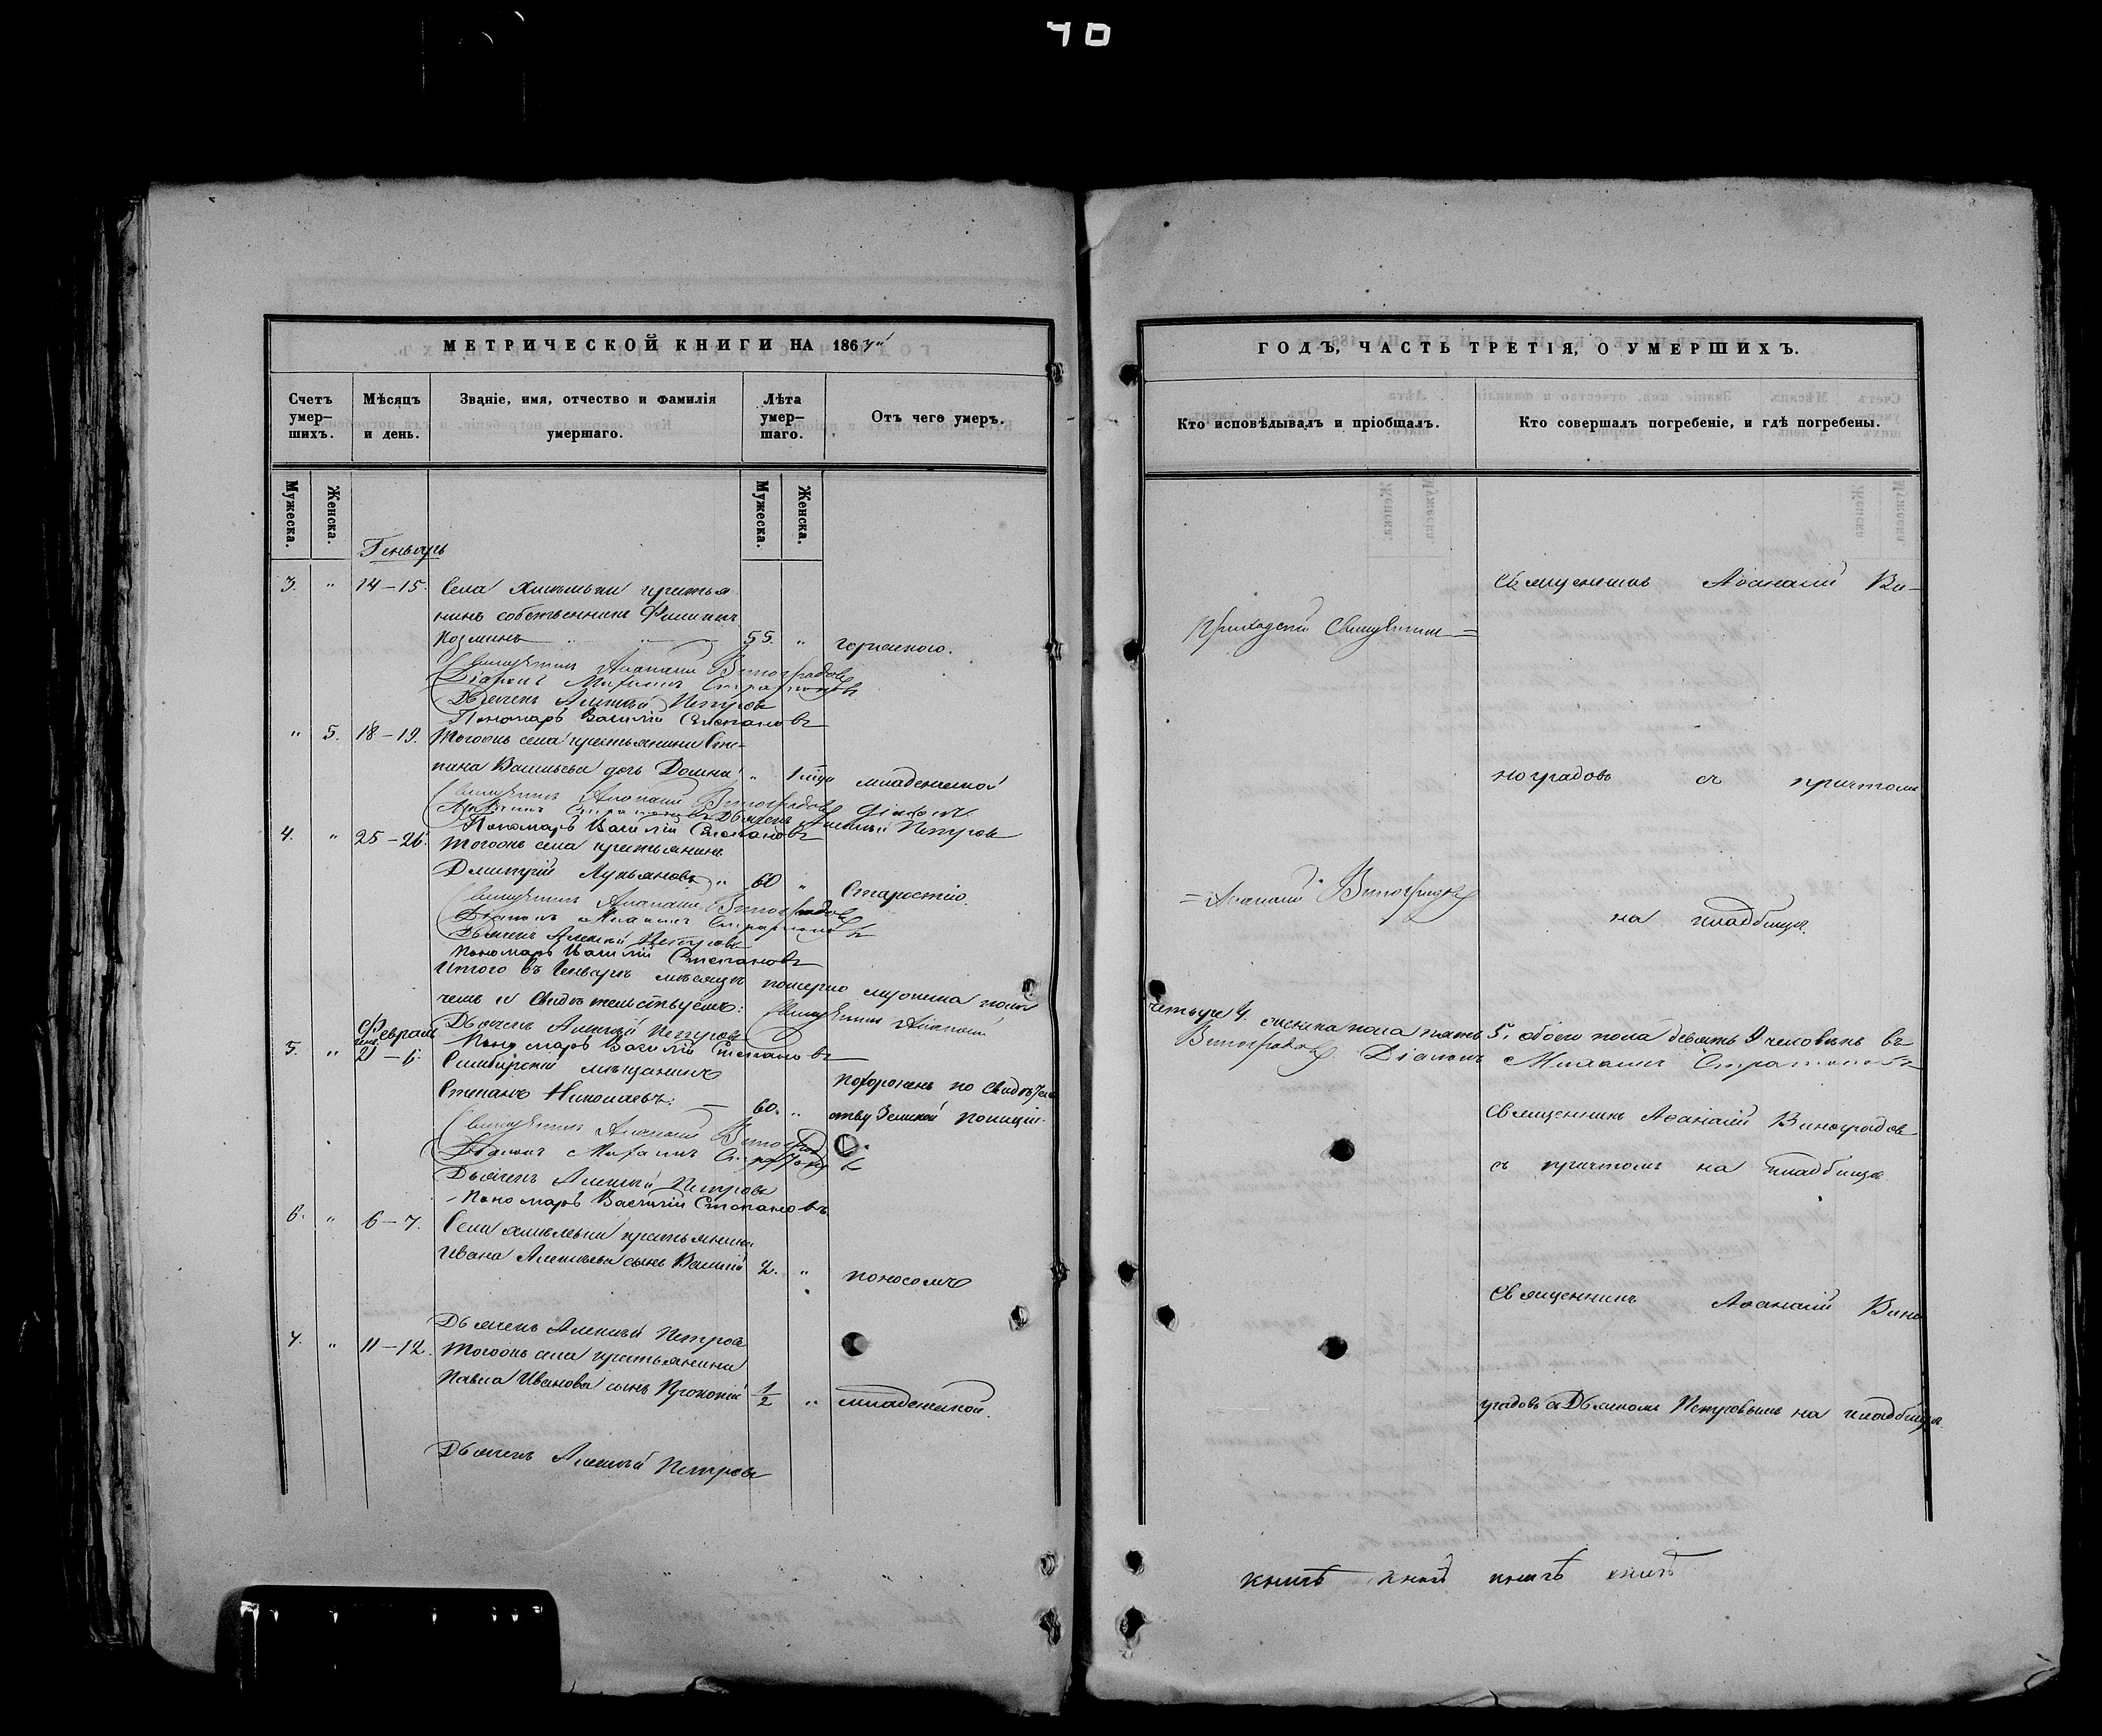 40
МЕТРИЧЕСКОЙ КНИГИ НА 186
Счетъ умер–шихъ.
Мѣсяцъ и день.
Званіе, имя, отчество и фамилія умершаго.
Лѣта умер–шаго.
Отъ чего умеръ.
Мужеска.
Женска.
Мужеска.
Женска.
Генварь
3. " 14–15. Села крестья
нинъ собственникъ Филиппъ
Козминъ 55. " горячкою.
Священникъ Аѳанасій Виноградовъ
Діаконъ Михаилъ Стратоновъ
Дьячекъ Алексѣй Петровъ
Пономарь Василій Степановъ
" 5. 18–19. Тогоожъ села крестьянина Сте-
пана Васильева дочь Домна " 1 года младенческой
Священникъ Аѳанасій Виноградовъ Діаконъ
Михаилъ Стратоновъ Дьячекъ Алексѣй Петровъ
Пономарь Василій Степановъ
4. " 25–26. Тогоожъ села крестьянинъ
Дмитрій Лукьяновъ " 60 " Старостію.
Священникъ Аѳанасій Виноградовъ
Діаконъ Михаилъ Стратоновъ
Дьячекъ Алексѣй Петровъ
Пономарь Василій Степановъ
Итого въ Генварѣ мѣсяцѣ померло мужеска пола
чемъ и свидѣтельствуемъ: Священникъ Аѳанасій
Дьячекъ Алексѣй Петровъ
Пономарь Василій Степановъ
Февраль
5. " 21–6. Симбирскій мѣщанинъ
Степанъ Николаевъ. — 60. " похороненъ по свидѣтель
ству Земской полиціи.
Священникъ Аѳанасій Виноградовъ
Діаконъ Михаилъ Стратоновъ
Дьячекъ Алексѣй Петровъ
Пономарь Василій Степановъ
6. " 6–7. Села крестьянина
Ивана Алексѣева сынъ Василій 2. " поносомъ
Дьячекъ Алексѣй Петровъ
7. " 11–12. Тогоожъ села крестьянина
Павла Иванова сынъ Прокопій 1/2 " младенческой.
Дьячекъ Алексѣй Петровъ
ГОДЪ, ЧАСТЬ ТРЕТІЯ, О УМЕРШИХЪ.
Кто исповѣдывалъ и пріобщалъ.
Кто совершалъ погребеніе, и гдѣ погребены.
Священникъ Аѳанасій Ви-
Приходскій Священникъ=
ноградовъ съ причтомъ
=Аѳанасій Виноградовъ
на кладбищѣ.
четыре 4. женска пола пять 5. обоего пола девять 9 человѣкъ въ
Виноградовъ Діаконъ Михаилъ Стратоновъ
Священникъ Аѳанасій Виноградовъ
съ причтомъ на кладбищѣ
Священникъ Аѳанасій Вино
градовъ съ Дьячкомъ Петровымъ на кладбищѣ